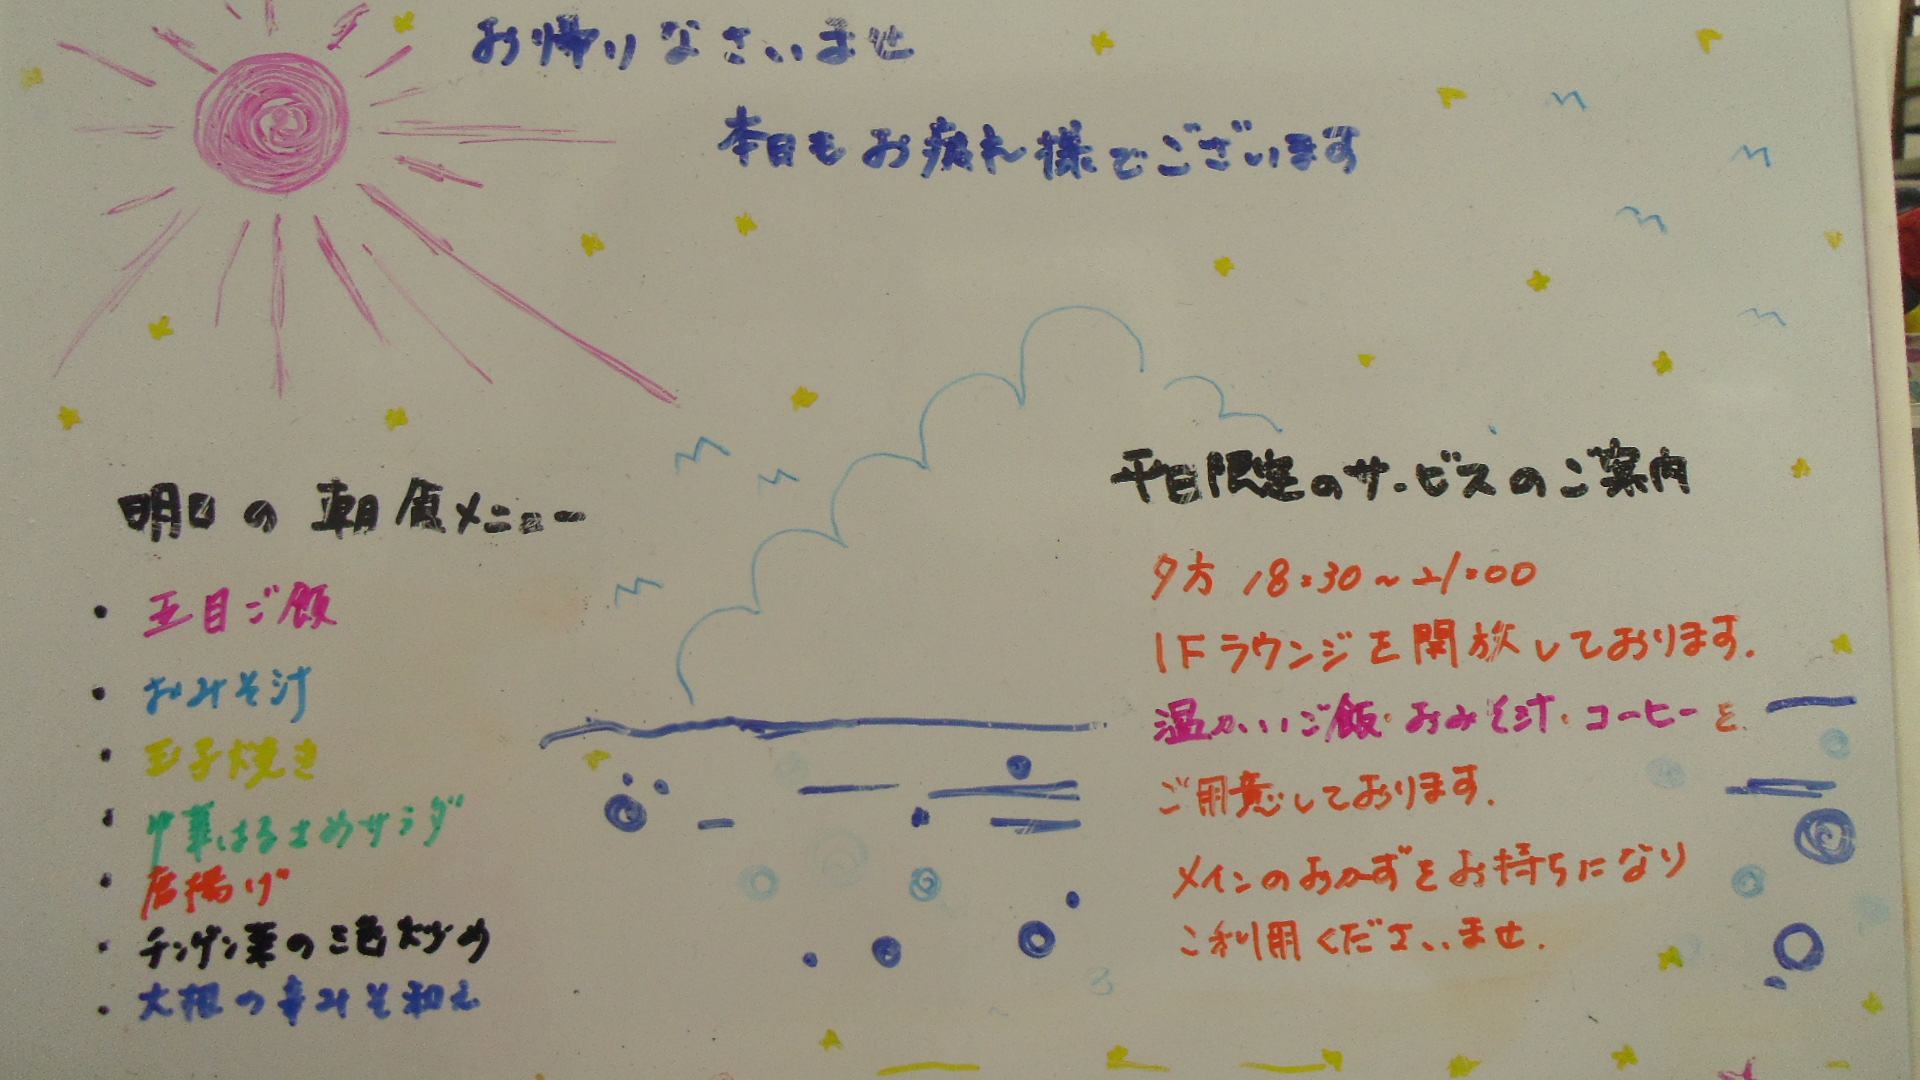 お帰りなさいませ
本日もお疲れ様でございます
明日の朝食メニュー
・五目ご飯
・おみそ汁
・玉子焼き
・中華はるさめサラダ
・唐揚げ
・チンゲン菜の三色炒め
・大根の辛みそ和え
平日限定のサービスのご案内
夕方 18:30~21:00
1Fラウンジを開放しております.
温かいご飯・おみそ汁・コーヒーを
ご用意しております.
メインのおかずをお持ちになり
ご利用くださいませ.